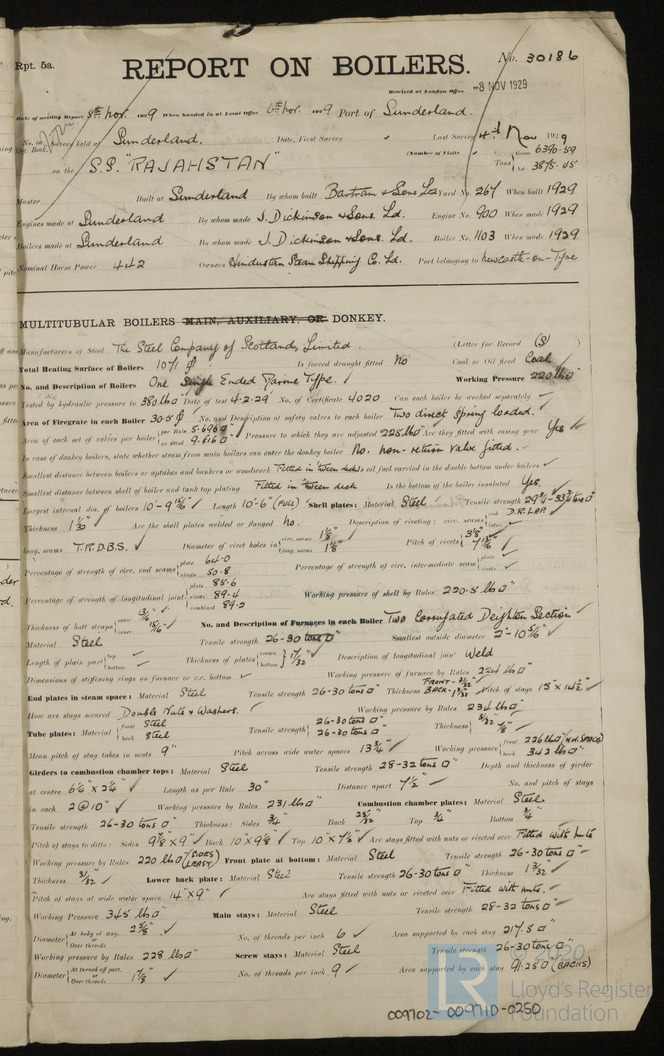 Rpt. 5a.
No. 30186
REPORT ON BOILERS.
Received at London Office 8 NOV 1929
Date of writing Report 8th Nov. 1929 When handed in at Local Office 6th Nov. 1929 Port of Sunderland.
No. in Reg. Book. Survey held at Sunderland. Date, First Survey Last Survey 4th Nov 1929
(Number of Visits
on the S.S. "RAJAHSTAN" Tons Gross 6390.59
Net 3875.45
Master Built at Sunderland By whom built Bartram & Sons Ltd Yard No. 267 When built 1929
Engines made at Sunderland By whom made J. Dickinson & Sons. Ld. Engine No. 900 When made 1929
Boilers made at Sunderland By whom made J. Dickinson & Sons. Ld. Boiler No. 1103 When made 1929
Nominal Horse Power 442 Owners Hindustan Steam Shipping Co. Ld. Port belonging to Newcastle-on-Tyne
MULTITUBULAR BOILERS MAIN, AUXILIARY, OR DONKEY.
Manufacturers of Steel The Steel Company of Scotland, Limited. (Letter for Record (S)
Total Heating Surface of Boilers 1071 Is forced draught fitted No Coal or Oil fired Coal
No. and Description of Boilers One Single Ended Marine Type. Working Pressure 220 lbs
Tested by hydraulic pressure to 380 lbs Date of test 4-2-29 No. of Certificate 4020 Can each boiler be worked separately
Area of Firegrate in each Boiler 30.5 No. and Description of safety valves to each boiler Two direct spring loaded.
Area of each set of valves per boiler per Rule 5.696 as fitted 9.616 Pressure to which they are adjusted 225 lbs Are they fitted with easing gear Yes
In case of donkey boilers, state whether steam from main boilers can enter the donkey boiler No. non-return valve fitted.
Smallest distance between boilers or uptakes and bunkers or woodwork Fitted in 'tween decks Is oil fuel carried in the double bottom under boilers
Smallest distance between shell of boiler and tank top plating Fitted in 'tween deck Is the bottom of the boiler insulated Yes.
Largest internal dia. of boilers 10'-9 15/16" Length 10'-6" (FULL) Shell plates: Material Steel Tensile strength
Thickness Are the shell plates welded or flanged No. Description of riveting: circ. seams end D.R. LAP inter.
long. seams T.R.D.B.S. Diameter of rivet holes in circ. seams 1 1/8" long. seams 1 1/8" Pitch of rivets 3 1/8" 7 15/16"
Percentage of strength of circ. end seams plate 64.0 rivets 50.8 Percentage of strength of circ. intermediate seam plate rivets
Percentage of strength of longitudinal joint plate 85.6 rivets 89.4 combined 89.2 Working pressure of shell by Rules 220.5 lbs
Thickness of butt straps outer 13/16" inner 15/16" No. and Description of Furnaces in each Boiler Two Corrugated Deighton Section
Material Steel Tensile strength 26-30 tons Smallest outside diameter 2'-10 5/16"
Length of plain part top bottom Thickness of plates crown bottom 17/32" Description of longitudinal joint Weld
Dimensions of stiffening rings on furnace or c.c. bottom Working pressure of furnace by Rules 224 lbs
End plates in steam space: Material Steel Tensile strength 26-30 tons Thickness FRONT- BACK- Pitch of stays 15" x 14 1/2"
How are stays secured Double Nuts & Washers. Working pressure by Rules 234 lbs
Tube plates: Material front Steel back Steel Tensile strength 26-30 tons 26-30 tons Thickness 7/8"
Mean pitch of stay tubes in nests 9" Pitch across wide water spaces 13 3/4" Working pressure front 226 lbs (W.W. SPACE) back 342 lbs
Girders to combustion chamber tops: Material Steel Tensile strength 28-32 tons Depth and thickness of girder
at centre 6 1/4" x 2 1/4" Length as per Rule 30" Distance apart 7 1/2" No. and pitch of stays
in each 2 @ 10" Working pressure by Rules 231 lbs Combustion chamber plates: Material Steel
Tensile strength 26-30 tons Thickness: Sides 3/4" Back 25/32" Top 3/4" Bottom 3/4"
Pitch of stays to ditto: Sides 9 7/8" x 9" Back 10" x 9 1/8" Top 10" x 7 1/2" Are stays fitted with nuts or riveted over Fitted with nuts
Working pressure by Rules 220 lbs (SIDES) (LEAST) Front plate at bottom: Material Steel Tensile strength 26-30 tons
Thickness Lower back plate: Material Steel Tensile strength 26-30 tons Thickness
Pitch of stays at wide water space 14" x 9" Are stays fitted with nuts or riveted over Fitted with nuts.
Working Pressure 345 lbs Main stays: Material Steel Tensile strength 28-32 tons
Diameter At body of stay, or Over threads 2 5/8" No. of threads per inch 6 Area supported by each stay 217.5
Working pressure by Rules 228 lbs Screw stays: Material Steel Tensile strength 26-30 tons
Diameter At turned off part, or Over threads 1 7/8" No. of threads per inch 9 Area supported by each stay 91.25 (BACKS)
© 2020
Lloyd's Register
Foundation
009702-009710-0250